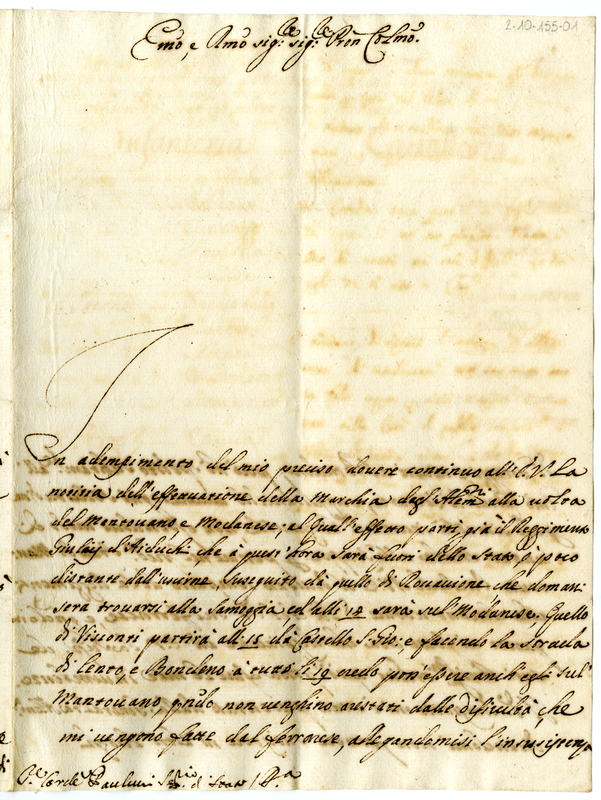 2-10-155-01
Emo, e Rmo sig:re sig:re Pron Colmo.
In adempimento del mio preciso dovere continuo all' E.V. La
notizia dell' effettuazione della Marchia degl' Alem:ni alla volta
del Mantovano, e Modanese; al qual' effetto partì già il Reggimento
Giulaij d'Aiduchi che à quest' hora sarà fuori dello Stato, ò poco
distante dall' uscirne, susseguito dà quello di che domani
sera trovarsi alla Samoggia, ed alli 14 sarà sul' Modanese. Quello
di Visconti partirà all: 15 dà Castello S. Gio:, e facendo la strada
di Cento, e Bondeno à tutto li 19 credo potr' essere anch' egli sul'
Mantovano, q.ndo non venghino arestati dalle dificultà, che
mi vengono fatte dal ferrarese, allegandomisi l'insusistenza
S:r Card:le Paulucci Seg:rio di Stato / R.a